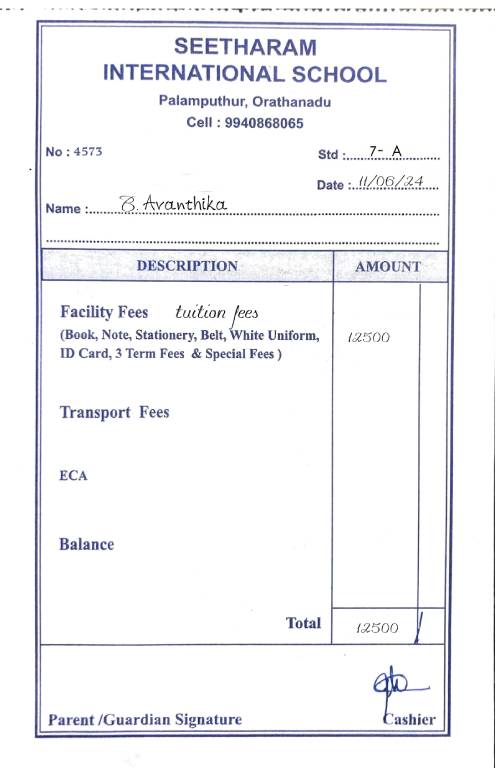 SEETHARAM
INTERNATIONAL SCHOOL
Palamputhur, Orathanadu
Cell : 9940868065
No : 4573
Std :...... 7- A ..........
Date : 11/06/24 ...
Name :...... B. Avanthika ......
DESCRIPTION AMOUNT
Facility Fees tuition fees
(Book, Note, Stationery, Belt, White Uniform, 12500
ID Card, 3 Term Fees & Special Fees )
Transport Fees
ECA
Balance
Total 12500
Parent /Guardian Signature Cashier